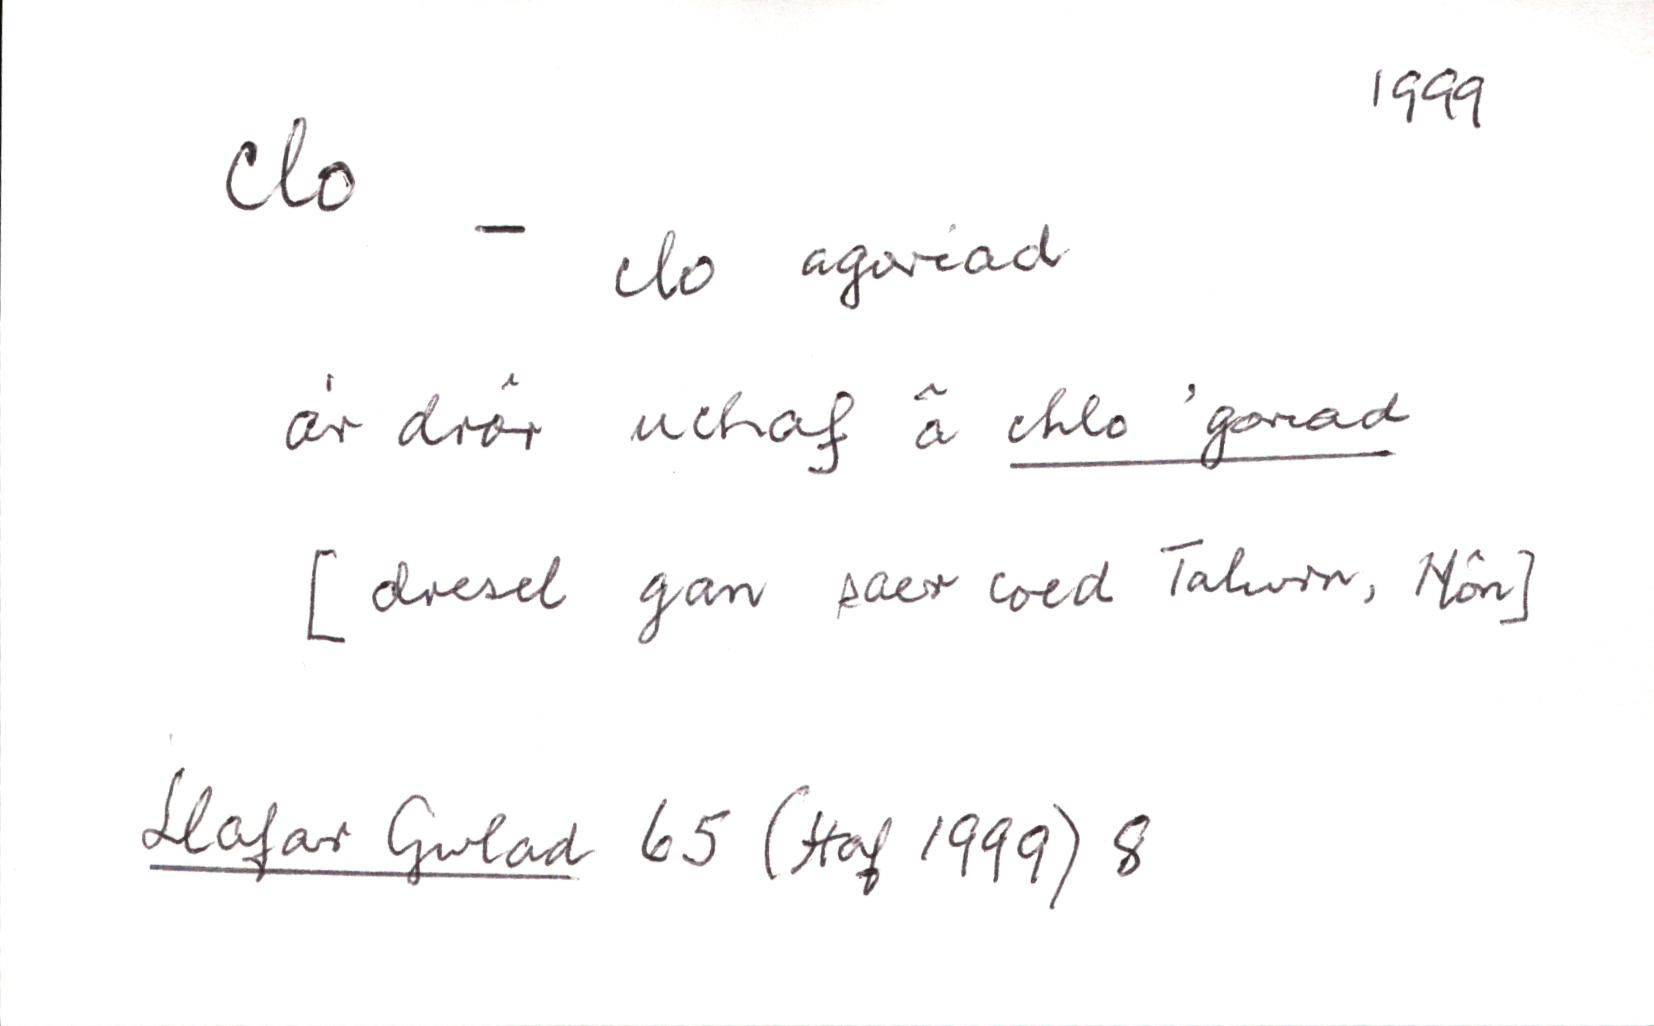 1999
clo –
clo agoriad
a'r drôr uchaf â chlo 'goriad
[dresel gan saer coed Talwrn, Môn]
Llafar Gwlad 65 (Haf 1999) 8